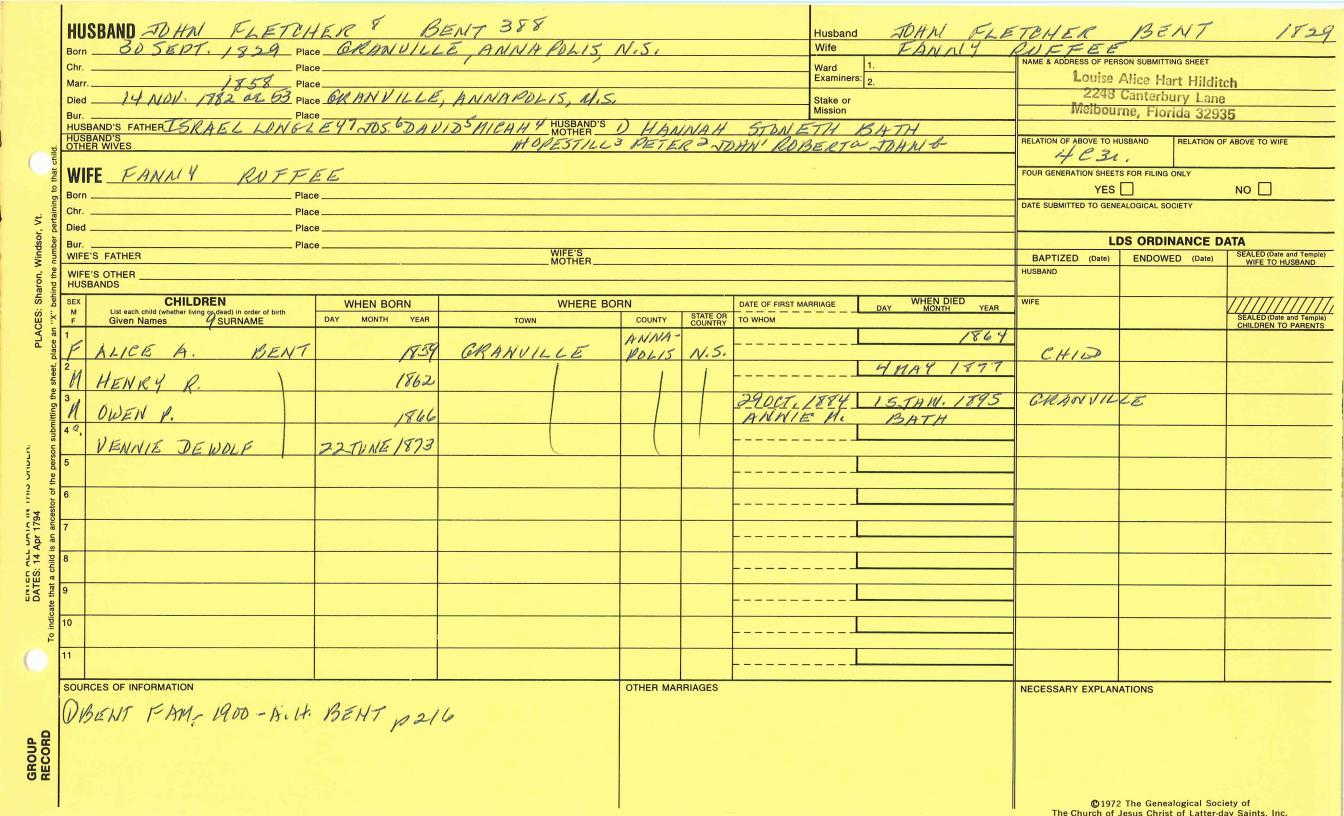 HUSBAND JOHN FLETCHER 8 BENT 388
Born 30 SEPT. 1829 Place GRANVILLE, ANNAPOLIS, N.S.
Chr. Place
Marr. 1858 Place
Died 14 NOV. 1782 or 83 Place GRANVILLE, ANNAPOLIS, N.S.
Bur. Place
HUSBAND'S FATHER ISRAEL LONGLEY 7 JOS. 6 DAVID 5 MICAH 4 HUSBAND'S MOTHER HANNAH STONETH BATH
HUSBAND'S OTHER WIVES HOPESTILL 3 PETER 2 JOHN 1 ROBERT a JOHN b
Husband JOHN FLETCHER BENT 1829
Wife FANNY RUFFEE
Ward Examiners: 1.
2.
Stake or Mission
NAME & ADDRESS OF PERSON SUBMITTING SHEET
Louise Alice Hart Hilditch
2248 Canterbury Lane
Melbourne, Florida 32935
RELATION OF ABOVE TO HUSBAND RELATION OF ABOVE TO WIFE
FOUR GENERATION SHEETS FOR FILING ONLY
YES NO
DATE SUBMITTED TO GENEALOGICAL SOCIETY
WIFE FANNY RUFFEE
Born Place
Chr. Place
Died Place
Bur. Place
WIFE'S FATHER WIFE'S MOTHER
WIFE'S OTHER HUSBANDS
LDS ORDINANCE DATA
BAPTIZED (Date) ENDOWED (Date) SEALED (Date and Temple) WIFE TO HUSBAND
HUSBAND
WIFE
SEALED (Date and Temple) CHILDREN TO PARENTS
SEX M F CHILDREN WHEN BORN WHERE BORN DATE OF FIRST MARRIAGE WHEN DIED
List each child (whether living or dead) in order of birth
Given Names 9 SURNAME DAY MONTH YEAR TOWN COUNTY STATE OR COUNTRY TO WHOM DAY MONTH YEAR
1 F ALICE A. BENT 1859 GRANVILLE ANNA-POLIS N.S. 1864 CHILD
2 M HENRY R. 1862 4 MAY 1877
3 M OWEN P. 1866 29 OCT. 1884 15 JAN. 1895 GRANVILLE
ANNIE M. BATH
4 VENNIE DEWOLF 22 JUNE 1873
5
6
7
8
9
10
11
SOURCES OF INFORMATION OTHER MARRIAGES NECESSARY EXPLANATIONS
① BENT FAM. 1900 - A.H. BENT p 216
PLACES: Sharon, Windsor, Vt.
DATES: 14 Apr 1794
To indicate that a child is an ancestor of the person submitting the sheet, place an "X" behind the number pertaining to that child.
GROUP RECORD
©1972 The Genealogical Society of
The Church of Jesus Christ of Latter-day Saints, Inc.